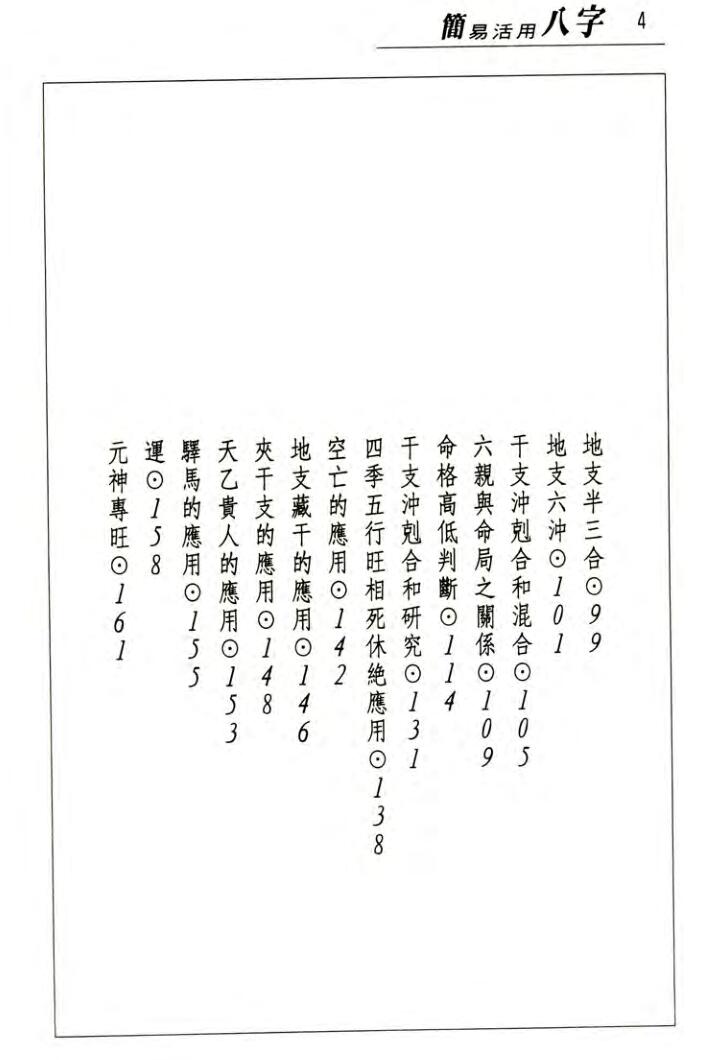 簡易活用八字 4
地支半三合⊙99
地支六沖⊙101
干支沖剋合和混合⊙105
六親與命局之關係⊙109
命格高低判斷⊙114
干支沖剋合和研究⊙131
四季五行旺相死休絶應用⊙138
空亡的應用⊙142
地支藏干的應用⊙146
夾干支的應用⊙148
天乙貴人的應用⊙153
驛馬的應用⊙155
運⊙158
元神專旺⊙161